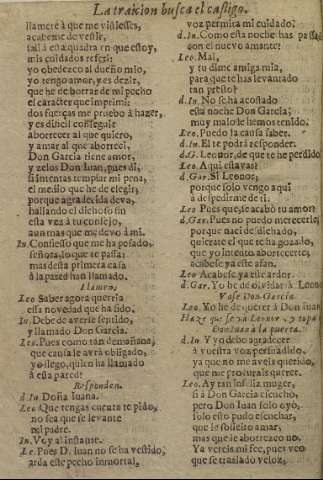 La traicion busca el castigo.
llamerè à que me vistiesses,
acabème de vestir,
salì à esta quadra en que estoy,
mis cuidados referì:
yo obedezco al dueño mio,
yo tengo amor, y es dezir,
que he de borrar de mi pecho
el caracter que imprimì:
dos fuerças me pruebo à hazer,
y es dificil conseguir
aborrecer al que quiero,
y amar al que aborrecì,
Don Garcia tiene amor,
y zelos Don Iuan, pues di,
si intentas templar mi pena,
el medio que he de elegir,
porque agradecida deva,
hallando el dichoso fin
esta vez à tu consejo,
aun mas que me devo à mi.
In. Confiesso que me ha pesado,
señora, lo que te passa:
mas desta primera casa
à la pared han llamado.
Llaman.
Leo. Saber agora querria
essa novedad que ha sido.
In. Debe de averse sentido,
y llamado Don Garcia.
Leo. Pues como tan de mañana,
que causa le avrà obligado,
yo llego, quien ha llamado
à esta pared?
Responden.
d. In. Doña Iuana.
Leo. Que tengas cuenta te pido,
no sea que se levante
mi padre.
In. Voy al instante.
Le. Pues D. Iuan no se ha vestido,
arda este pecho inmortal,
voz permita mi cuidado:
d. In. Como esta noche has passado
con el nuevo amante?
Leo. Mal,
y tu dime amiga mia,
para que te has levantado
tan presto?
d. In. No se ha acostado
esta noche Don Garcia;
muy malo le hemos tenido.
Leo. Puedo la causa saber.
d. In. El te podrà responder.
d. G. Leonor, de que te he perdido.
Leo. Aqui estavas?
d. Gar. Si Leonor;
porque solo vengo aqui
à despedirme de ti.
Leo Pues que, se acabò tu amor?
d. Gar. Pues no puedo merecerte,
porque naci desdichado,
quierate el que te ha gozado,
que yo intento aborrecerte,
acabese ya este afan.
Leo Acabese ya este ardor.
d. Gar. Yo he de olvidar à Leonor.
Vase Don Garcia.
Leo. Yo he de querer à Don Iuan.
Haze que se và Leonor, y topa
Don Iuan à la puerta.
d. In. Y yo debo agradecer
à vuestra voz persuadido,
ya que no me aveis querido,
que me procurais querer.
Leo. Ay tan infeliz muger,
si à Don Garcia escucho,
pero Don Iuan solo oyò,
solo esto pudo escuchar,
que le solicito amar,
mas que le aborrezco no.
Ya vereis mi fee, pues veo
que se traslado veloz,